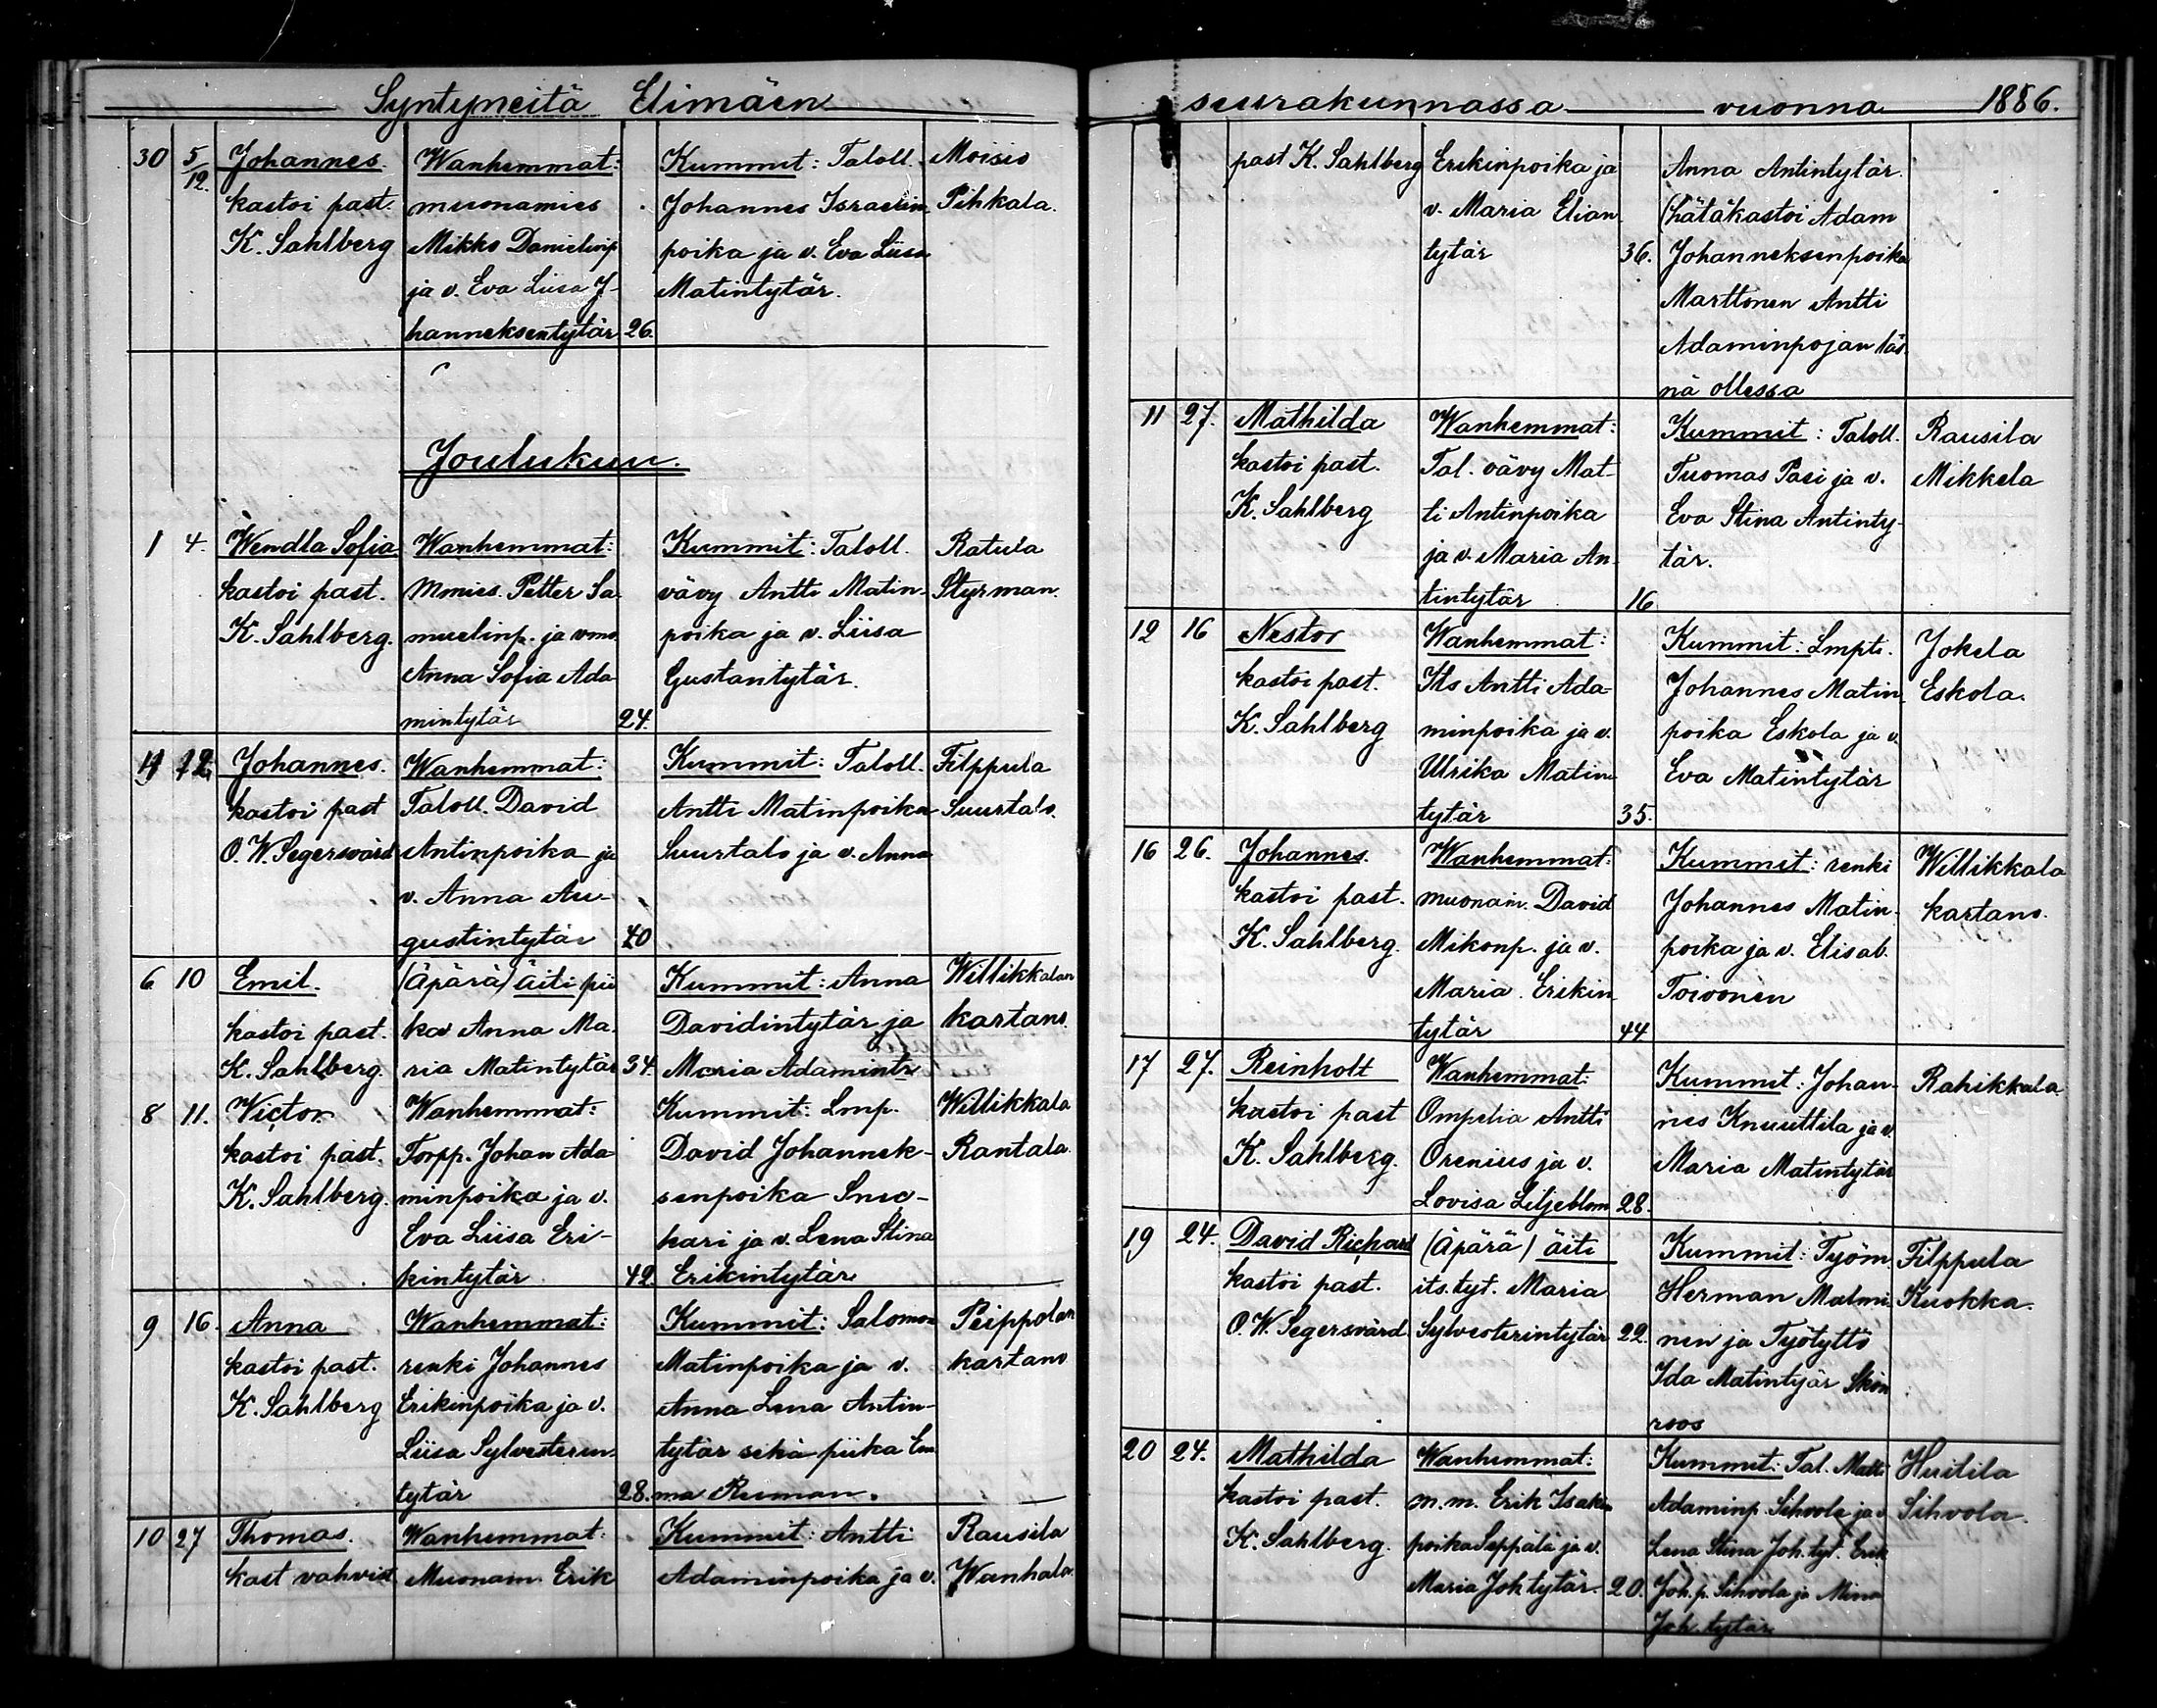 Syntyneitä Elimäen
30 5/12. Johannes. Wanhemmat: Kummit: Taloll. Moisio
kastoi past. muonamies Johannes Israelin Pihkala.
K. Sahlberg Mikko Danielinp. poika ja v. Eva Liisa
ja v. Eva Liisa J- Matintytär.
hanneksentytär 26.
Joulukuu.
1 4. Wendla Sofia Wanhemmat: Kummit: Taloll. Ratula
kastoi past. Mmies. Petter Sa- vävy Antti Matin- Styrman.
K. Sahlberg. muelinp. ja vmo poika ja v. Liisa
Anna Sofia Ada- Gustantytär.
mintytär 24.
4 12 Johannes. Wanhemmat: Kummit: Taloll. Filppula
kastoi past Taloll. David Antti Matinpoika Suurtalo.
O. W. Segersvärd Antinpoika ja Suurtalo ja v. Anna
v. Anna Au-
gustintytär 40
6 10 Emil. (Äpärä) äiti pii Kummit: Anna Willikkalan
kastoi past. ka Anna Ma- Davidintytär ja kartano.
K. Sahlberg. ria Matintytär 34. Maria Adamintr
8 11. Victor Wanhemmat: Kummit: Lmp. Willikkala
kastoi past. Torpp. Johan Ada- David Johannek- Rantala.
K. Sahlberg. minpoika ja v. senpoika Suo-
Eva Liisa Eri- kari ja v. Lena Stina
kintytär 42. Erikintytär
9 16. Anna Wanhemmat: Kummit: Salomon Peippolan
kastoi past. renki Johannes Matinpoika ja v. kartano
K. Sahlberg Erikinpoika ja v. Anna Lena Antin-
Liisa Sylvesterin- tytär sekä piika Em
tytär 28. ma Ruman.
10 27 Thomas. Wanhemmat: Kummit: Antti Rausila
kast vahvist Muonam. Erik Adaminpoika ja v. Wanhala.
seurakunnassa vuonna 1886.
past K. Sahlberg Erikinpoika ja Anna Antintytär.
v. Maria Elian (hätäkastoi Adam
tytär 36. Johanneksenpoika
Marttonen Antti
Adaminpojan läs-
nä ollessa
11 27. Mathilda Wanhemmat: Kummit: Taloll. Rausila
kastoi past. Tal. vävy Mat- Tuomas Pasi ja v. Mikkela
K. Sahlberg ti Antinpoika Eva Stina Antinty-
ja v. Maria An- tär.
tintytär 16
12 16 Nestor Wanhemmat: Kummit: Lmpti. Jokela
kastoi past. Its Antti Ada- Johannes Matin- Eskola.
K. Sahlberg minpoika ja v. poika Eskola ja v.
Ulrika Matin Eva Matintytär
tytär 35.
16 26. Johannes. Wanhemmat: Kummit: renki Willikkala
kastoi past. muonam. David Johannes Matin- kartano.
K. Sahlberg. Mikonp. ja v. poika ja v. Elisab.
Maria Erikin Toivonen
tytär 44
17 27. Reinholt Wanhemmat: Kummit: Johan- Rahikkala.
kastoi past Ompelia Antti nes Knuuttila ja v.
K. Sahlberg. Orenius ja v. Maria Matintytär
Lovisa Liljeblom 28.
19 24. David Richard (Äpärä) äiti Kummit: Työm Filppula
kastoi past. its. tyt. Maria Herman Malmi Kuokka.
O. W. Segersvärd Sylvesterintytär 22. nen ja Työtyttö
Ida Matintyär Skön
roos
20 24. Mathilda Wanhemmat: Kummit: Tal. Matti Huitila
kastoi past. m. m. Erik Isakin Adaminp. Sihvola ja v Sihvola.
K. Sahlberg. poika Seppälä ja v. Lena Stina Joh. tyt. Erik
Maria Joh tytär. 20. Joh. p. Sihvola ja Mina
Joh. tytär